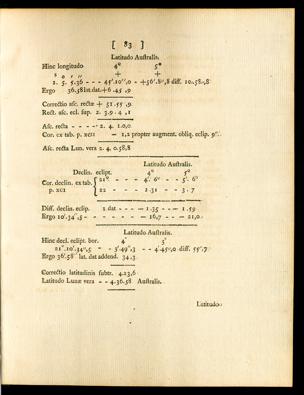 [ 83 ]
Latitudo Australis.
Hinc longitudo 4° 5°
s o , ,, + +
2. 5. 5.36 - - - 45'.10",0 - +56'.8",8 diff. 10.58.,8
Ergo 36.58 lat.dat.+6.45 ,9
Correctio asc. rectæ + 51.55 ,9
Rect. asc. ecl. sup. 2. 3.9.4 ,1
Asc. recta - - - - 2. 4. 1.0,0
Cor. ex tab. p. XCII - 1,2 propter augment. obliq. eclip. 9".
Asc. recta Lun. vera 2. 4. 0.58,8
Latitudo Australis.
Declin. eclipt. 4° 5°
Cor. declin. ex tab. { 21° - - - 4'. 6" - - 5'. 6"
p. XCI 22 - - - 2.31 - - 3. 7
Diff. declin. eclip. 1 dat - - - 1.35 - - 1.59
Ergo 10'.34",5 - - - - - 16,7 - - 21,0
Latitudo Australis.
Hinc decl. eclipt. bor. 4° 5°
21°.10'.34",5 - - 3'.49",3 - - 4'.45",0 diff. 55",7
Ergo 36'.58" lat. dat addend. 34.3
Correctio latitudinis subtr. 4.23,6
Latitudo Lunæ vera - - 4.36.58 Australis.
Latitudo